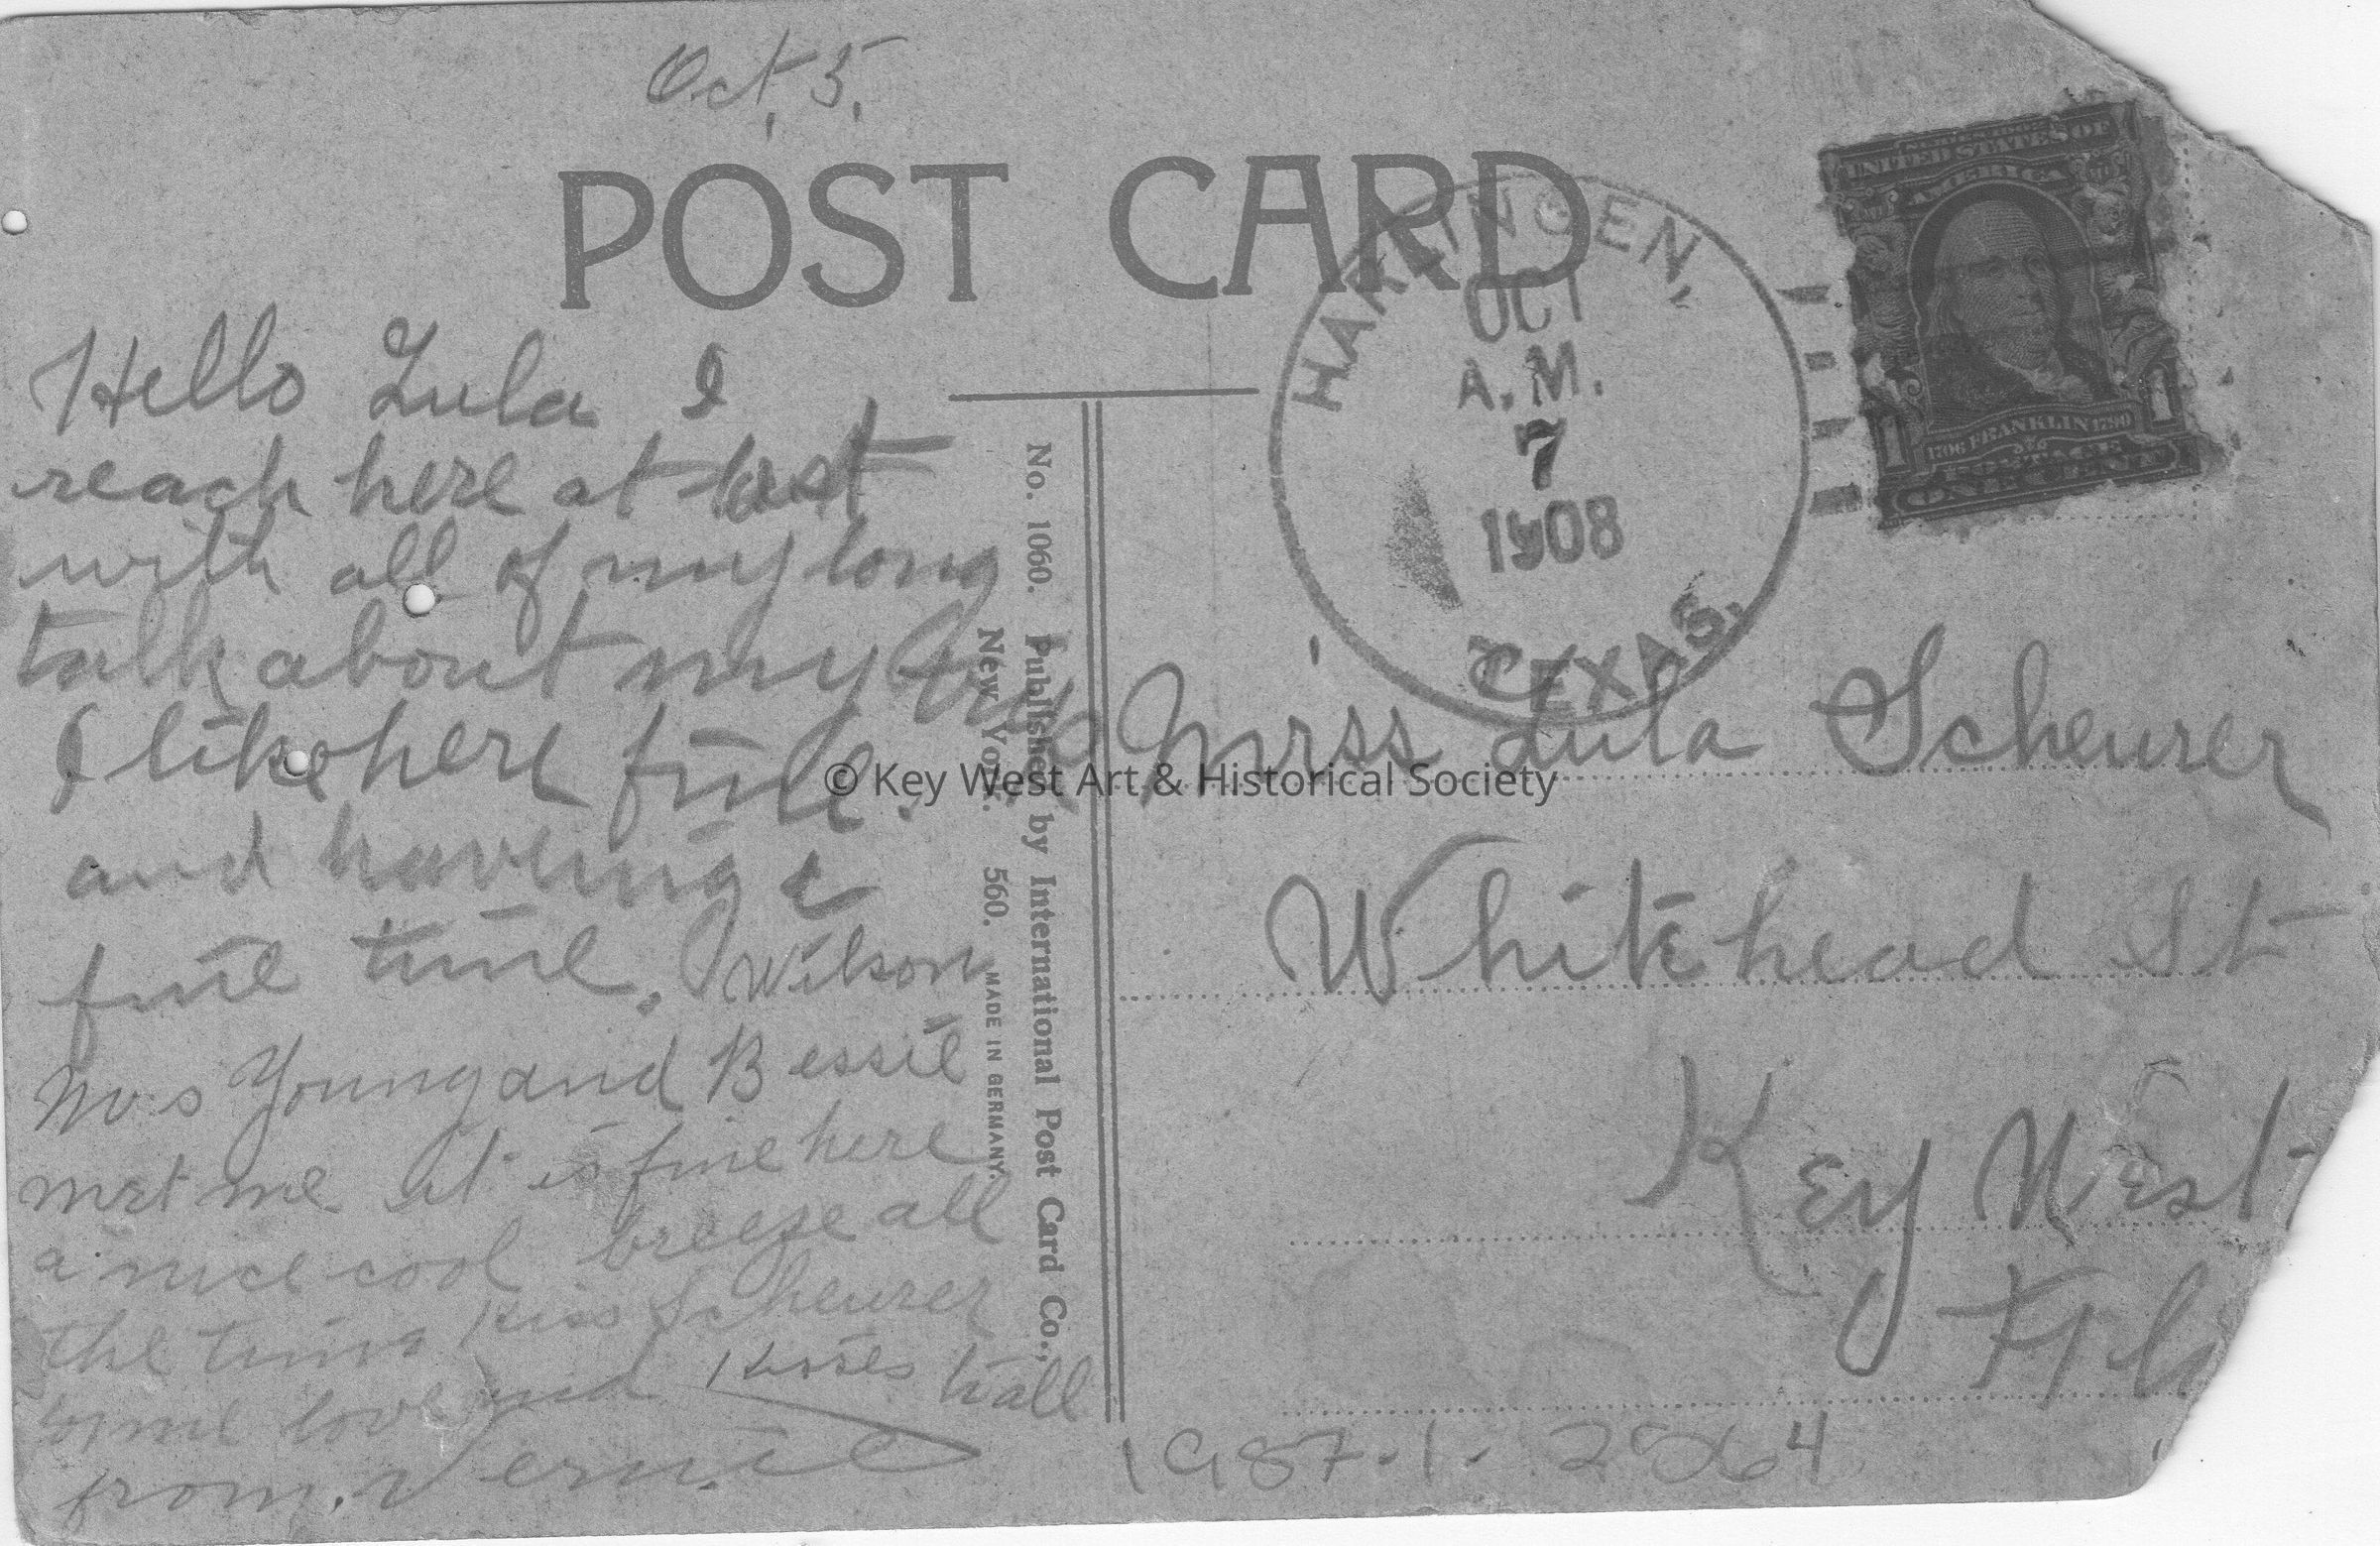 Oct, 5.
POST CARD
Hello Lula I
reach here at last
with all of my long
talk about my trip
I like here fine.
and haveing a
fine time. Wilson
Mrs Young and Bessie
met me it is fine here
a nice cool breeze all
the time Kiss Scheurer
love and kisses to all
from. Vernie
No. 1060. Published by International Post Card Co.,
New York. 560. MADE IN GERMANY.
HARLINGEN,
OCT
A.M.
7
1908
TEXAS.
UNITED STATES OF
AMERICA
1706 FRANKLIN 1790
POSTAGE
1 1
ONE CENT
Mrss Lula Scheurer
Whitehead St
Key West
Fla
© Key West Art & Historical Society
1987.1.2564